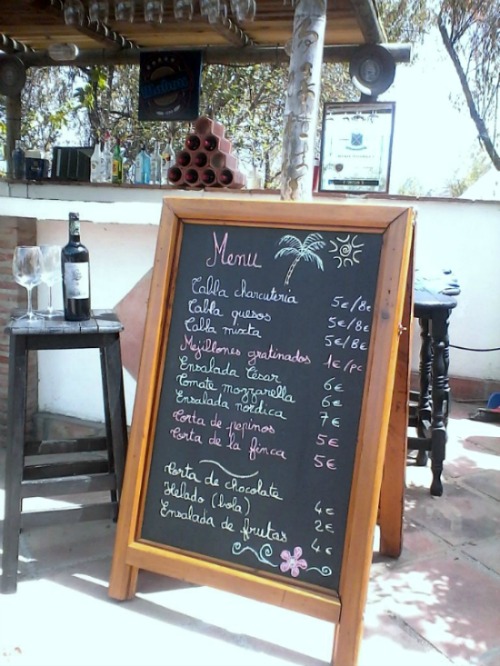 Menu
Tabla charcutería 5€/8€
Tabla quesos 5€/8€
Tabla mixta 5€/8€
Mejillones gratinados 1€/pc
Ensalada César 6€
Tomate mozzarella 6€
Ensalada nórdica 7€
Torta de pepinos 5€
Torta de la finca 5€
Torta de chocolate 4€
Helado (bola) 2€
Ensalada de frutas 4€